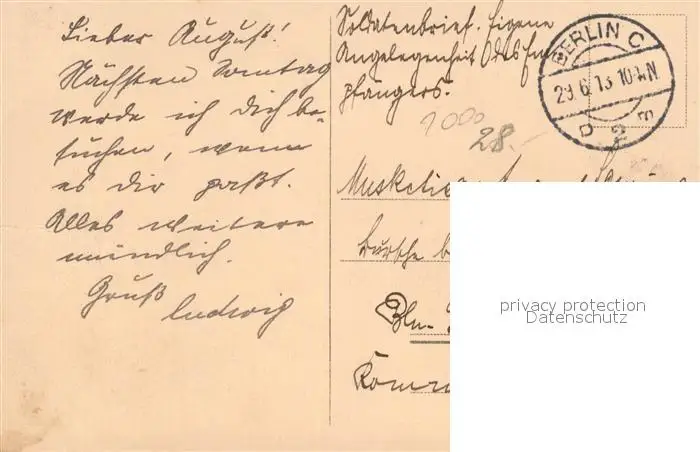 Lieber August!
Nächsten Sonntag
werde ich dich be-
suchen, wenn
es dir paßt.
Alles weitere
mündlich.
Gruß
Ludwig
Soldatenbrief. Eigene
Angelegenheit des Em
pfängers.
BERLIN C
29.6.13.10-11N
2
1000
28.-
Musketier
Bursche b
Bln-
privacy protection
Datenschutz